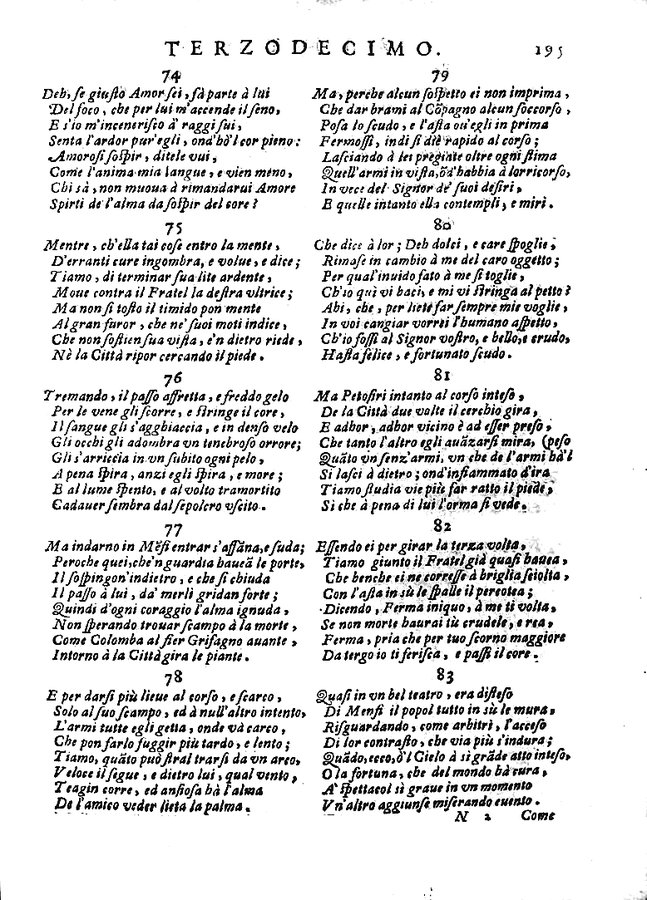 TERZODECIMO. 195
74
Deh, se giusto Amor sei, fà parte à lui
Del foco, che per lui m'accende il seno,
E s'io m'incenerisco à raggi sui,
Senta l'ardor pur'egli, ond'hò'l cor pieno:
Amorosi sospir, ditele vui,
Come l'anima mia langue, e vien meno,
Chi sà, non muova à rimandarui Amore
Spirti de l'alma da sospir del core?
75
Mentre, ch'ella tai cose entro la mente,
D'erranti cure ingombra, e volue, e dice;
Tiamo, di terminar sua lite ardente,
Moue contra il Fratel la destra vltrice;
Ma non sì tosto il timido pon mente
Al gran furor, che ne' suoi moti indice,
Che non sostien sua vista, e'n dietro riede,
Nè la Città ripor cercando il piede.
76
Tremando, il passo affretta, e freddo gelo
Per le vene gli scorre, e stringe il core,
Il sangue gli s'agghiaccia, e in denso velo
Gli occhi gli adombra vn tenebroso orrore;
Gli s'arriccia in vn subito ogni pelo,
A pena spira, anzi egli spira, e more;
E al lume spento, e al volto tramortito
Cadauer sembra dal sepolcro vscito.
77
Ma indarno in Mẽsi entrar s'affãna, e suda;
Peroche quei, che'n guardia haueã le porte,
Il sospingon'indietro, e che si chiuda
Il passo à lui, da' merli gridan forte;
Quindi d'ogni coraggio l'alma ignuda,
Non sperando trouar scampo à la morte,
Come Colomba al fier Grifagno auante,
Intorno à la Città gira le piante.
78
E per darsi più lieue al corso, e scarco,
Solo al suo scampo, ed à null'altro intento,
L'armi tutte egli getta, onde và carco,
Che pon farlo fuggir più tardo, e lento;
Tiamo, quãto può stral trarsi da vn arco,
Veloce il segue, e dietro lui, qual vento,
Teagin corre, ed ansiosa hà l'alma
De l'amico veder lieta la palma.
79
Ma, perche alcun sospetto ei non imprima,
Che dar brami al Cõpagno alcun soccorso,
Posa lo scudo, e l'asta ou'egli in prima
Fermossi, indi si diè rapido al corso;
Lasciando à lei pregiate oltre ogni stima
Quell'armi in vista, õd'habbia à lor ricorso,
In vece del Signor de' suoi desiri,
E quelle intanto ella contempli, e miri.
80
Che dice à lor; Deh dolci, e care spoglie,
Rimase in cambio à me del caro oggetto;
Per qual'inuido fato à me si toglie,
Ch'io quì vi baci, e mi vi stringa al petto?
Ahi, che, per liete far sempre mie voglie,
In voi cangiar vorrei l'humano aspetto,
Ch'io fossi al Signor vostro, e bello, e crudo,
Hasta felice, e fortunato scudo.
81
Ma Petosiri intanto al corso inteso,
De la Città due volte il cerchio gira,
E adhor, adhor vicino è ad esser preso,
Che tanto l'altro egli auãzarsi mira, (peso
Quãto vn senz'armi, vn che de l'armi hà'l
Si lasci à dietro; ond'infiammato d'ira
Tiamo studia vie più far ratto il piede,
Sì che à pena di lui l'orma si vede.
82
Essendo ei per girar la terza volta,
Tiamo giunto il Fratel già quasi hauea,
Che benche ei ne corresse à briglia sciolta,
Con l'asta in sù le spalle il percotea;
Dicendo, Ferma iniquo, à me ti volta,
Se non morte haurai tiù crudele, e rea,
Ferma, pria che per tuo scorno maggiore
Da tergo io ti ferisca, e passi il core.
83
Quasi in vn bel teatro, era disteso
Di Mensi il popol tutto in sù le mura,
Risguardando, come arbitri, l'acceso
Di lor contrasto, che via più s'indura;
Quãdo, ecco, ò'l Cielo à sì grãde atto inteso,
O la fortuna, che del mondo hà cura,
A' spettacol sì graue in vn momento
Vn'altro aggiunse miserando euento.
N 2 Come